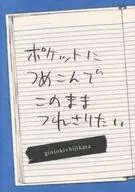 ポケットに
つめこんで
このまま
つれさりたい
gintokixhijikata